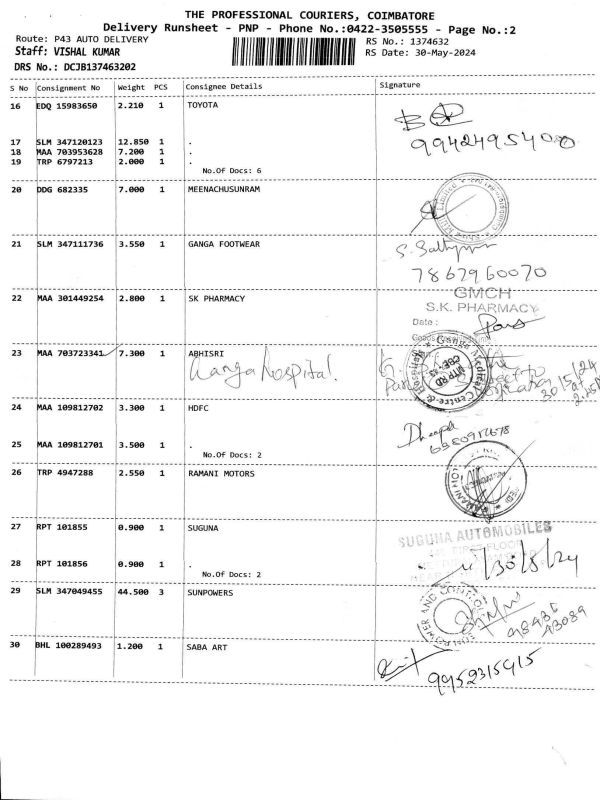 THE PROFESSIONAL COURIERS, COIMBATORE
Delivery Runsheet - PNP - Phone No.:0422-3505555 - Page No.:2
Route: P43 AUTO DELIVERY
RS No.: 1374632
Staff: VISHAL KUMAR
RS Date: 30-May-2024
DRS No.: DCJB137463202
S No Consignment No Weight PCS Consignee Details Signature
16 EDQ 15983650 2.210 1 TOYOTA
9942495400
17 SLM 347120123 12.850 1 .
18 MAA 703953628 7.200 1 .
19 TRP 6797213 2.000 1 .
No.Of Docs: 6
20 DDG 682335 7.000 1 MEENACHUSUNRAM
21 SLM 347111736 3.550 1 GANGA FOOTWEAR
7867960070
22 MAA 301449254 2.800 1 SK PHARMACY
GMCH
S.K. PHARMACY
Date :
23 MAA 703723341 7.300 1 ABHISRI
Ganga hospital.
Ganga Medical Centre & Hospital
MTP RD
30/5/24
24 MAA 109812702 3.300 1 HDFC
25 MAA 109812701 3.500 1 .
No.Of Docs: 2
26 TRP 4947288 2.550 1 RAMANI MOTORS
27 RPT 101855 0.900 1 SUGUNA
SUGUNA AUTOMOBILES
28 RPT 101856 0.900 1 .
No.Of Docs: 2
29 SLM 347049455 44.500 3 SUNPOWERS
30 BHL 100289493 1.200 1 SABA ART
9952315915